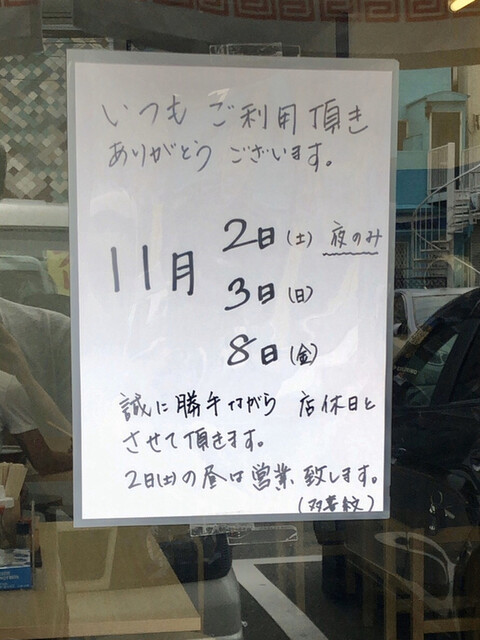 いつも ご利用頂き
ありがとう ございます。
11月
2日(土) 夜のみ
3日(日)
8日(金)
誠に勝手ながら 店休日と
させて頂きます。
2日(土)の昼は営業致します。
(双喜紋)